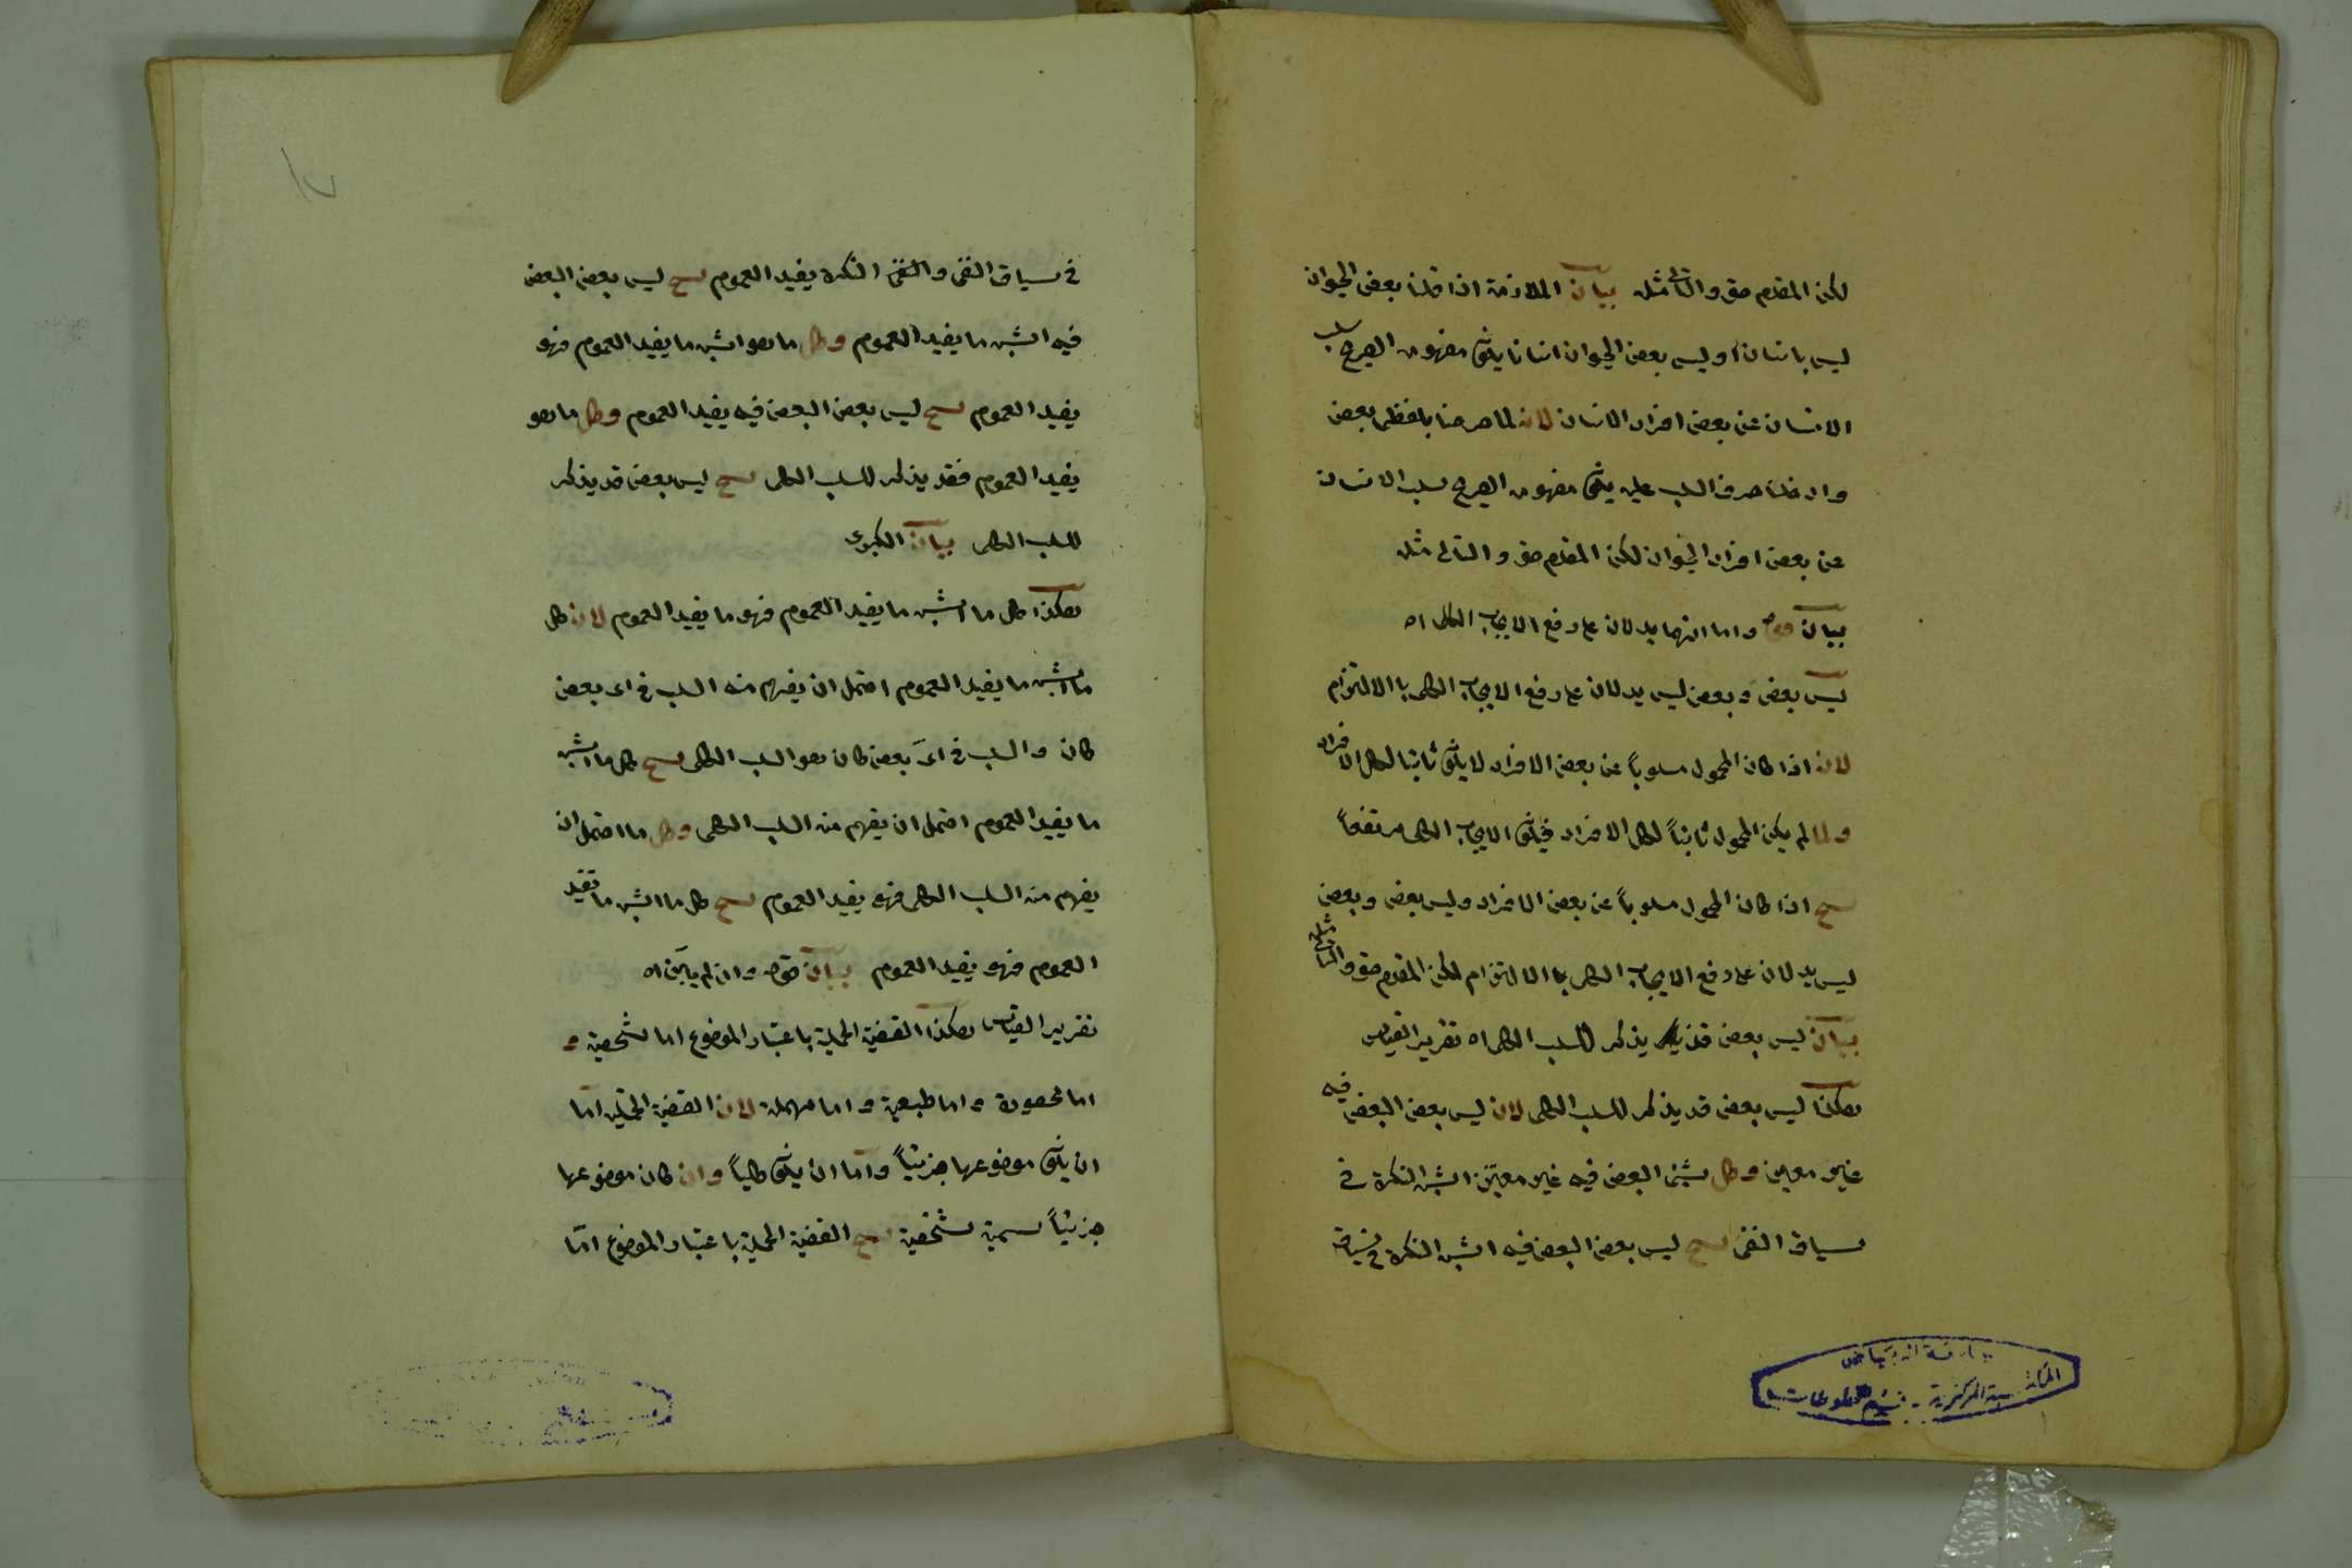 لكن المقدم حق والتالى مثله بيان الملازمة اذا قلنا بعض الحيوان
ليس بانسان او ليس بعض الحيوان انسانا يكون مفهومه الصريح سلب
الانسان عن بعض افراد الانسان لانه لما صرحنا بلفظ بعض
وادخلنا حرف السلب عليه يكون مفهومه الصريح سلب الانسان
عن بعض افراد الحيوان لكن المقدم حق والتالى مثله
بيان قوله واما انهما يدلان على رفع الايجاب الكلى اه
ليس بعض وبعض ليس يدلان على رفع الايجاب الكلى بالالتزام
لانه اذا كان المحمول مسلوباً عن بعض الافراد لا يكون ثابتا لكل الافراد
ولما لم يكن المحمول ثابتاً لكل الافراد فيكون الايجاب الكلى مرتفعاً
ينتج اذا كان المحمول مسلوباً عن بعض الافراد وليس بعض وبعض
ليس يدلان على رفع الايجاب الكلى بالالتزام لكن المقدم حق والتالى مثله
بيان ليس بعض قد يذكر للسلب الكلى اه تقرير القياس
هكذا ليس بعض قد يذكر للسلب الكلى لان ليس بعض البعض فيه
غير معين وكل شئ البعض فيه غير معين اشبه النكرة فى
سياق النفى ينتج ليس بعض البعض فيه اشبه النكرة فى سياق
فى سياق النفى والنفى النكرة يفيد العموم ينتج ليس بعض البعض
فيه اشبه ما يفيد العموم وكل ما هو اشبه ما يفيد العموم فهو
يفيد العموم ينتج ليس بعض البعض فيه يفيد العموم وكل ما هو
يفيد العموم فقد يذكر للسلب الكلى ينتج ليس بعض قد يذكر
للسلب الكلى بيان الكبرى
هكذا كل ما اشبه ما يفيد العموم فهو ما يفيد العموم لان كل
ما اشبه ما يفيد العموم احتمل ان يفهم منه السلب فى اى بعض
كان والسلب فى اىّ بعض كان هو السلب الكلى ينتج كل ما اشبه
ما يفيد العموم احتمل ان يفهم منه السلب الكلى وكل ما احتمل ان
يفهم منه السلب الكلى فهو يفيد العموم ينتج كل ما اشبه ما تفيد
العموم فهو يفيد العموم بيان قوله وان لم يبين اه
تقرير القياس هكذا القضية الحملية باعتبار الموضوع اما شخصية و
اما محصورة واما طبيعية واما مهملة لان القضية الحملية اما
ان يكون موضوعها جزئياً واما ان يكون كلياً وان كان موضوعها
جزئياً سميت شخصية ينتج القضية الحملية باعتبار الموضوع امّا
المكتبة المركزية - قسم المخطوطات